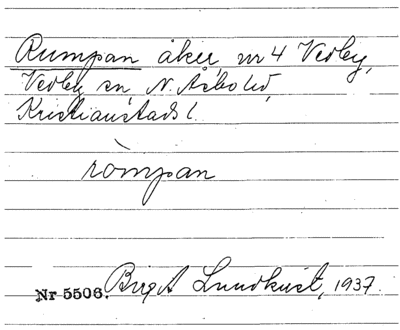 Rumpan åker, nr 4 Vedby,
Vedby sn N. Åsbo hd,
Kristianstads l.
ròmpan
Nr 5506. Birgit Lundkvist, 1937